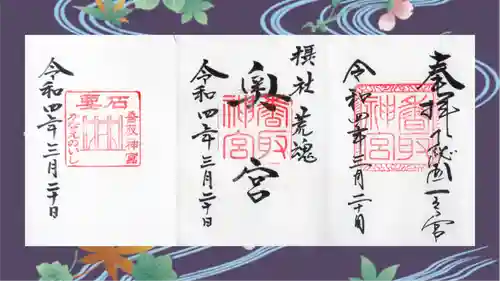 奉拝 下総国一之宮
香取
神宮
令和四年三月二十日
摂社 荒魂
奥宮
香取
神宮
令和四年三月二十日
要石
香取神宮
かなめのいし
令和四年三月二十日